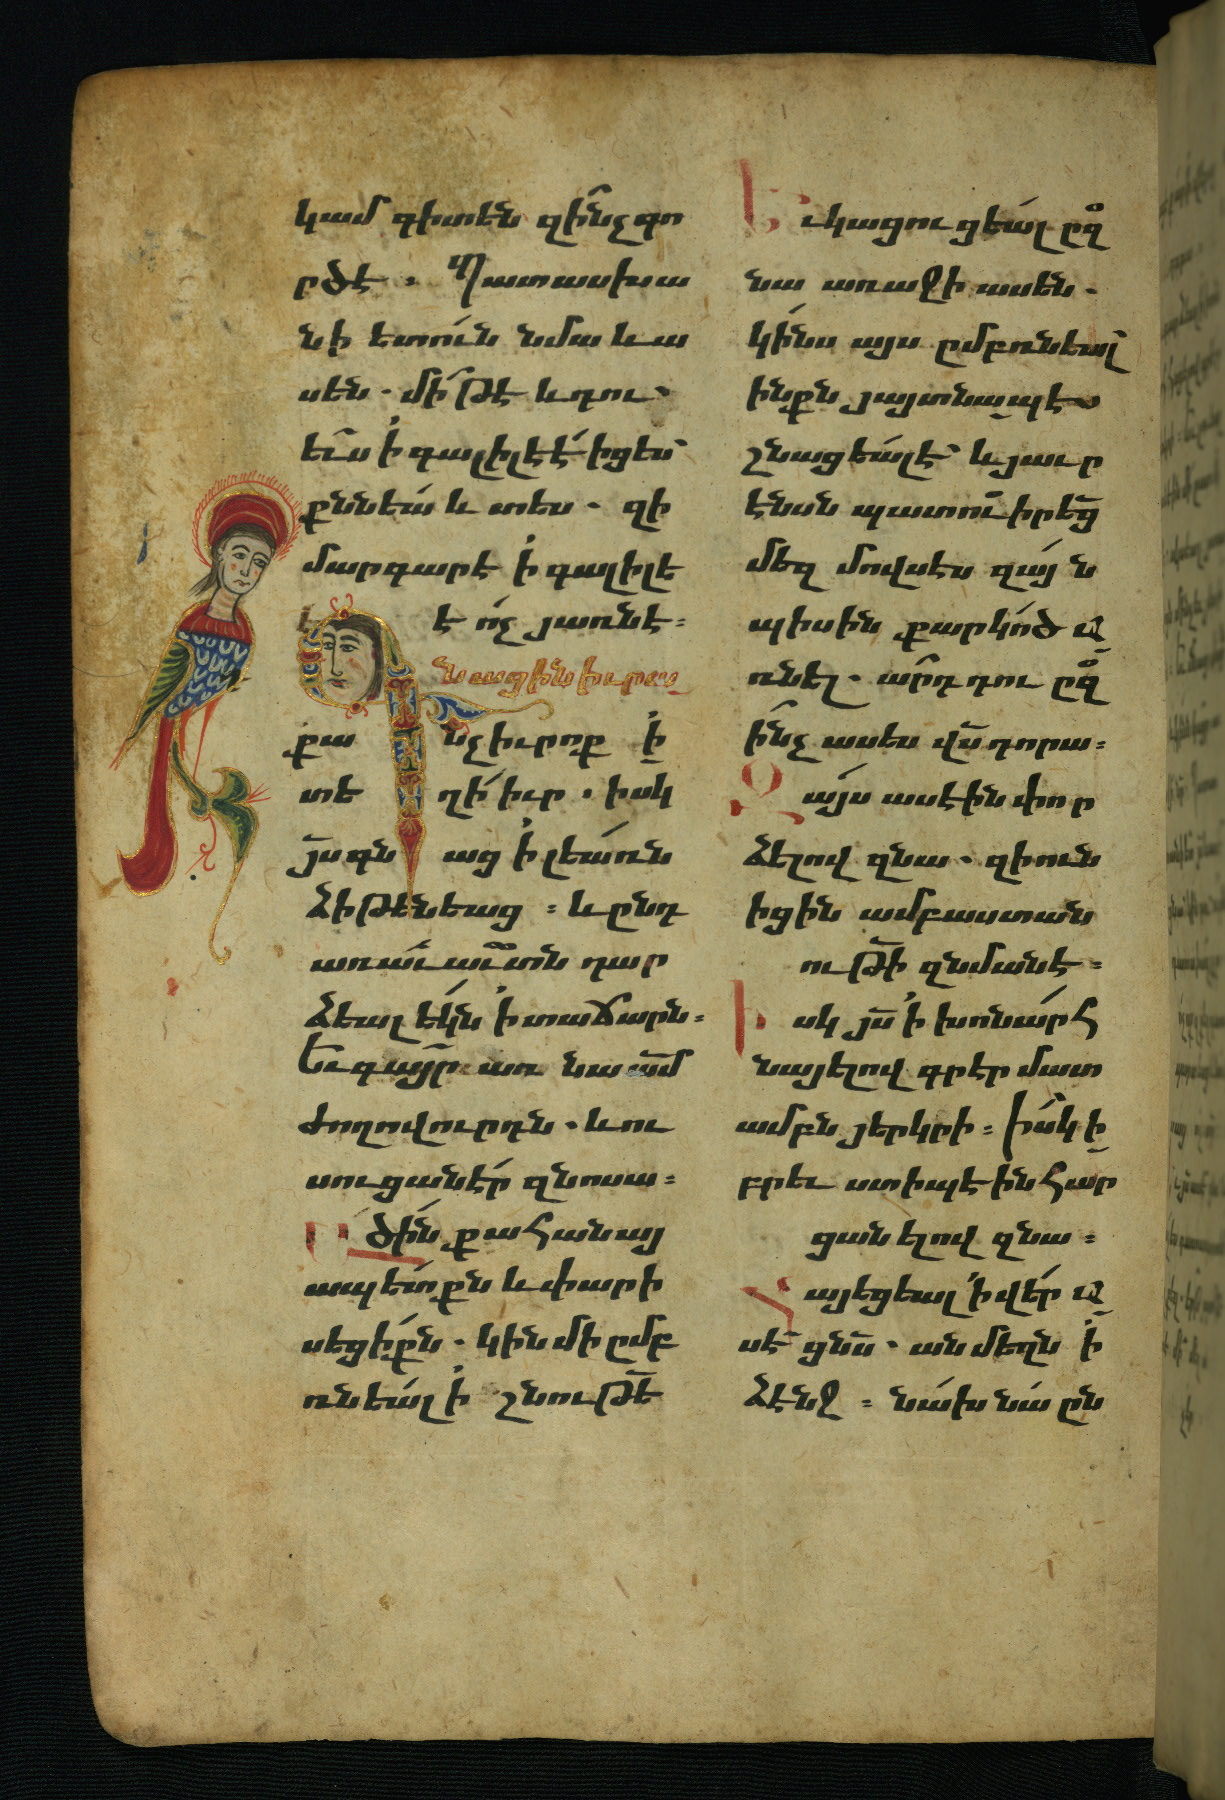 կամ գիտէն զինչ գո
րծէ ։ Պատասխա
նի ետուն նմա և ա
սեն · մի թէ և դու
ես ի գալիլէէ իցես
քննեա և տես · զի
մարգարէ ի գալիլե
է ոչ յառնէ ։
նացին իւրա
քա նչիւրոք ի
տե ղի իւր · իսկ
յս գն աց ի լեառն
ձիթենեաց ։ և ընդ
առաւաւտն դար
ձեալ եկն ի տաճարն ։
Եւ գայր առ նա ամ
ժողովուրդն · և ու
սուցանէր զնոսա ։
Ածին քահանայ
ապետքն և փարի
սեցիքն · կին մի ըմբ
ռնեալ ի շնութե
Եւ կացուցեալ ըզ
նա առաջի ասեն ·
կինս այս ըմբռնեալ
ինքն յայտնապէ
շնացեալ է և յաւր
էնսն պատուիրեց
մեզ մովսէս զայն
պիսին քարկոծ ա
ռնել · արդ դու ըզ
ինչ ասես վս դորա ։
Զայս ասէին փոր
ձելով զնա · զի ուն
իցին ամբաստան
ութի զնմանէ ։
Իսկ յս ի խոնարհ
նայելով գրէր մատ
ամբն յերկրի ։ Իսկ ի
բրեւ ստիպէին հար
ցանելով զնա ։
Հայեցեալ ի վեր ա
սէ ցնս · անմեղն ի
ձէնջ ։ նախ նա ըն